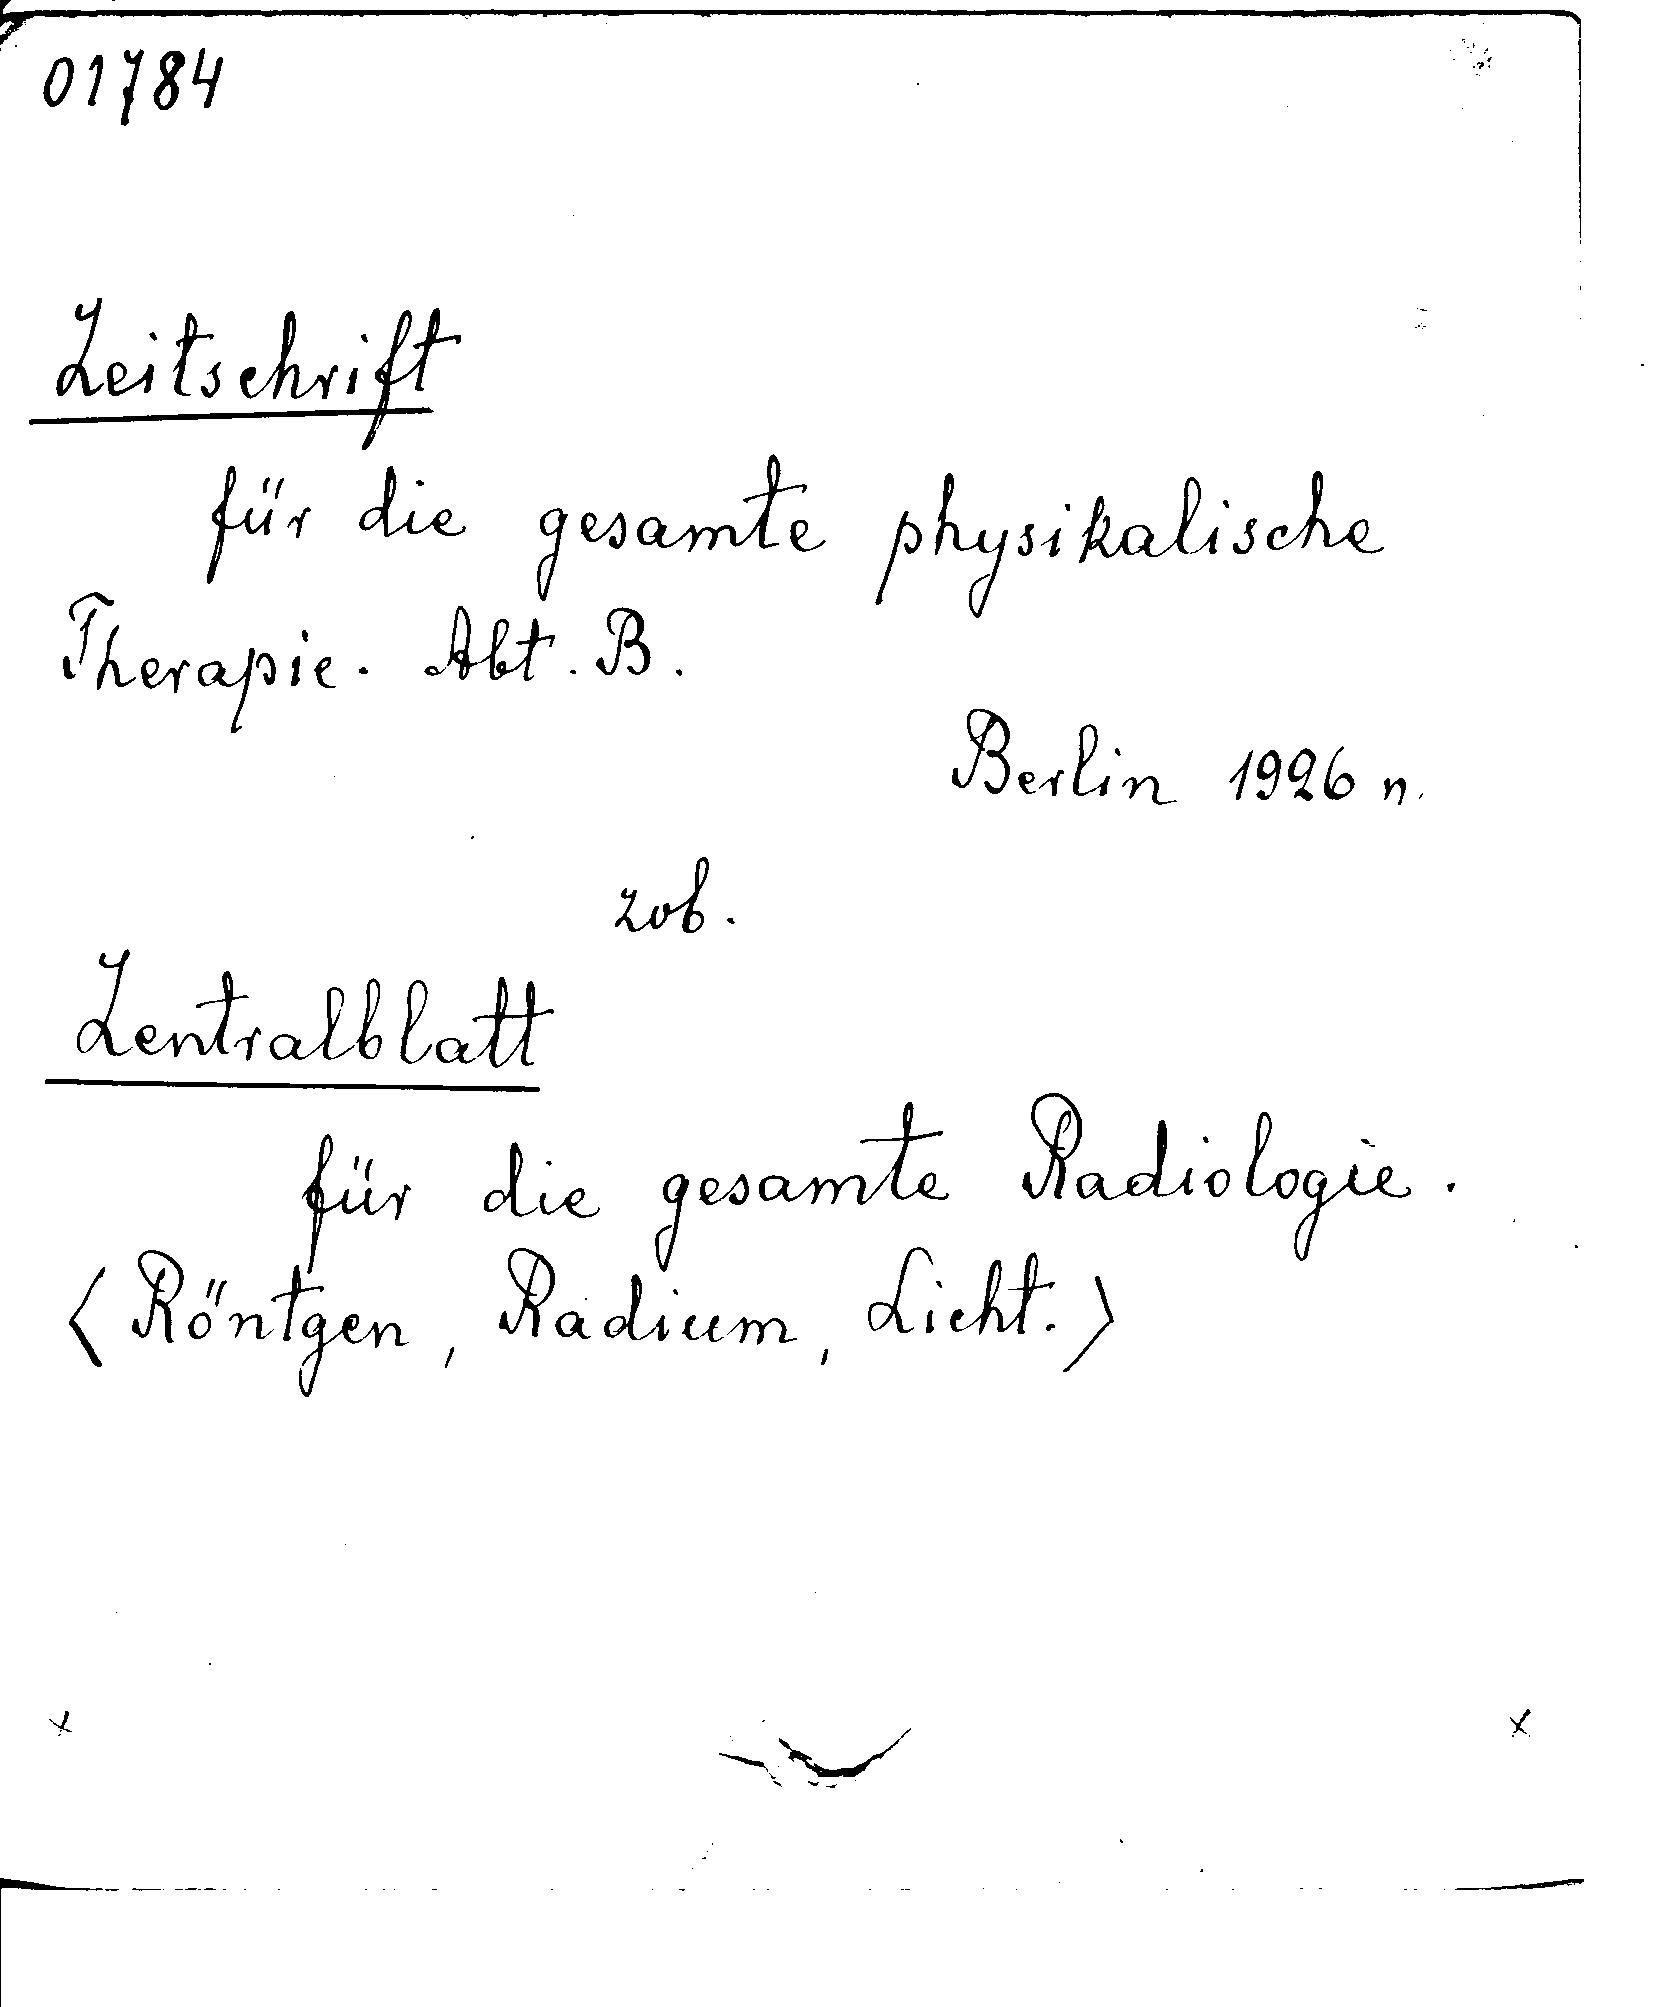 01784
Zeitschrift
für die gesamte physikalische
Therapie. Abt. B.
Berlin 1926 n.
zob.
Zentralblatt
für die gesamte Radiologie.
<Röntgen, Radium, Licht.>